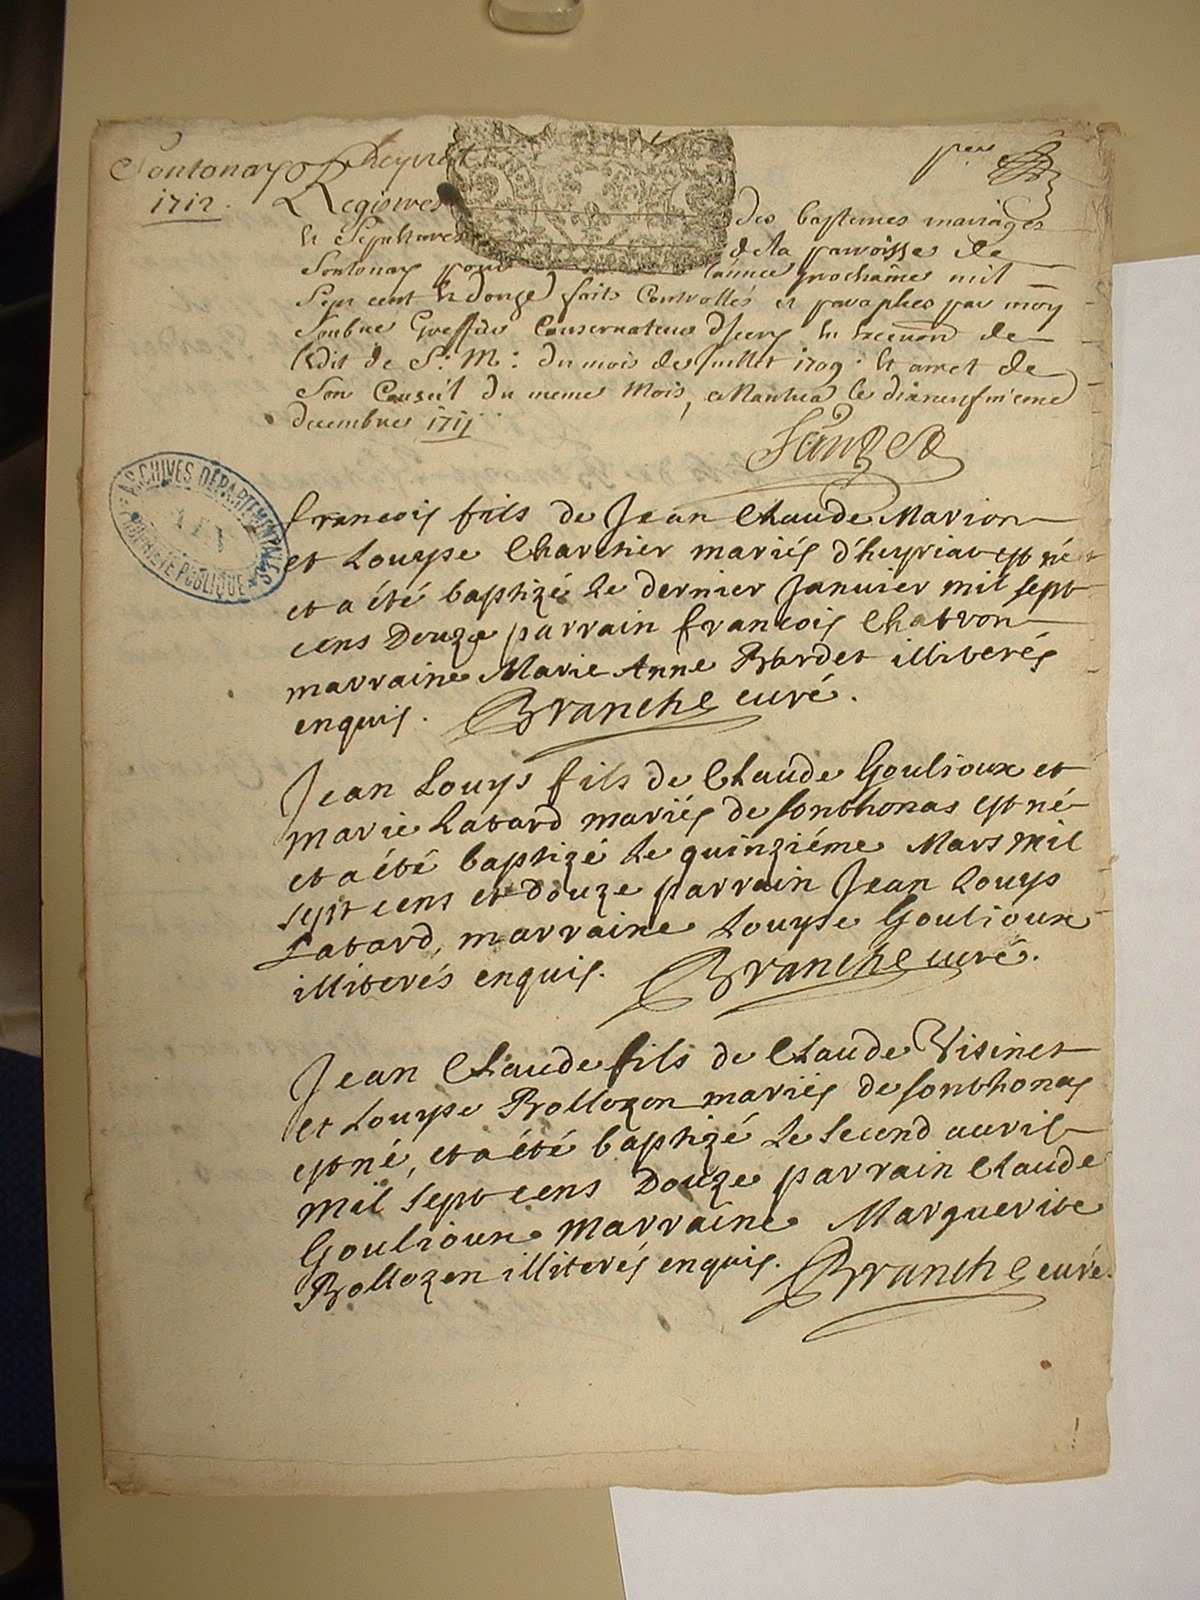 Sontonax & heyriat
1712.
Registres des baptemes mariages
et Sepultures de la parroisse de
Sontonax pour l'année prochaine mil
Sept cent et douze faits Controllés et paraphés par moy
Soubne Greffier Conservateur d'iceux en execuõn de
l'edit de S: M: du mois de juillet 1709. et arret de
Son Conseil du meme Mois, a Nantua le dixneufvieme
decembre 1711
ARCHIVES DÉPARTEMENTALES
AIN
PROPRIÉTÉ PUBLIQUE
francois fils de Jean Claude Marion
et Louyse Charctier mariés d'heyriat est né
et a été baptizé le dernier Janvier mil sept
cens Douze parrain francois Chatron
marraine Marie Anne Bardet illiterés
enquis. Branche curé.
Jean Louys fils de Claude Goulioux et
marie Latard mariés de sonthonas est né
et a été baptizé le quinziéme Mars mil
sept cens et douze parrain Jean Louys
Latard, marraine Louyse Goulioux
illiterés enquis. Branche curé.
Jean Claude fils de Claude Visinet
et Louyse Bollozon mariés de sonthonas
est né, et a été baptizé le second avril
mil sept cens Douze parrain Claude
Goulioux marraine Marguerite
Bollozon illiterés enquis. Branche curé.